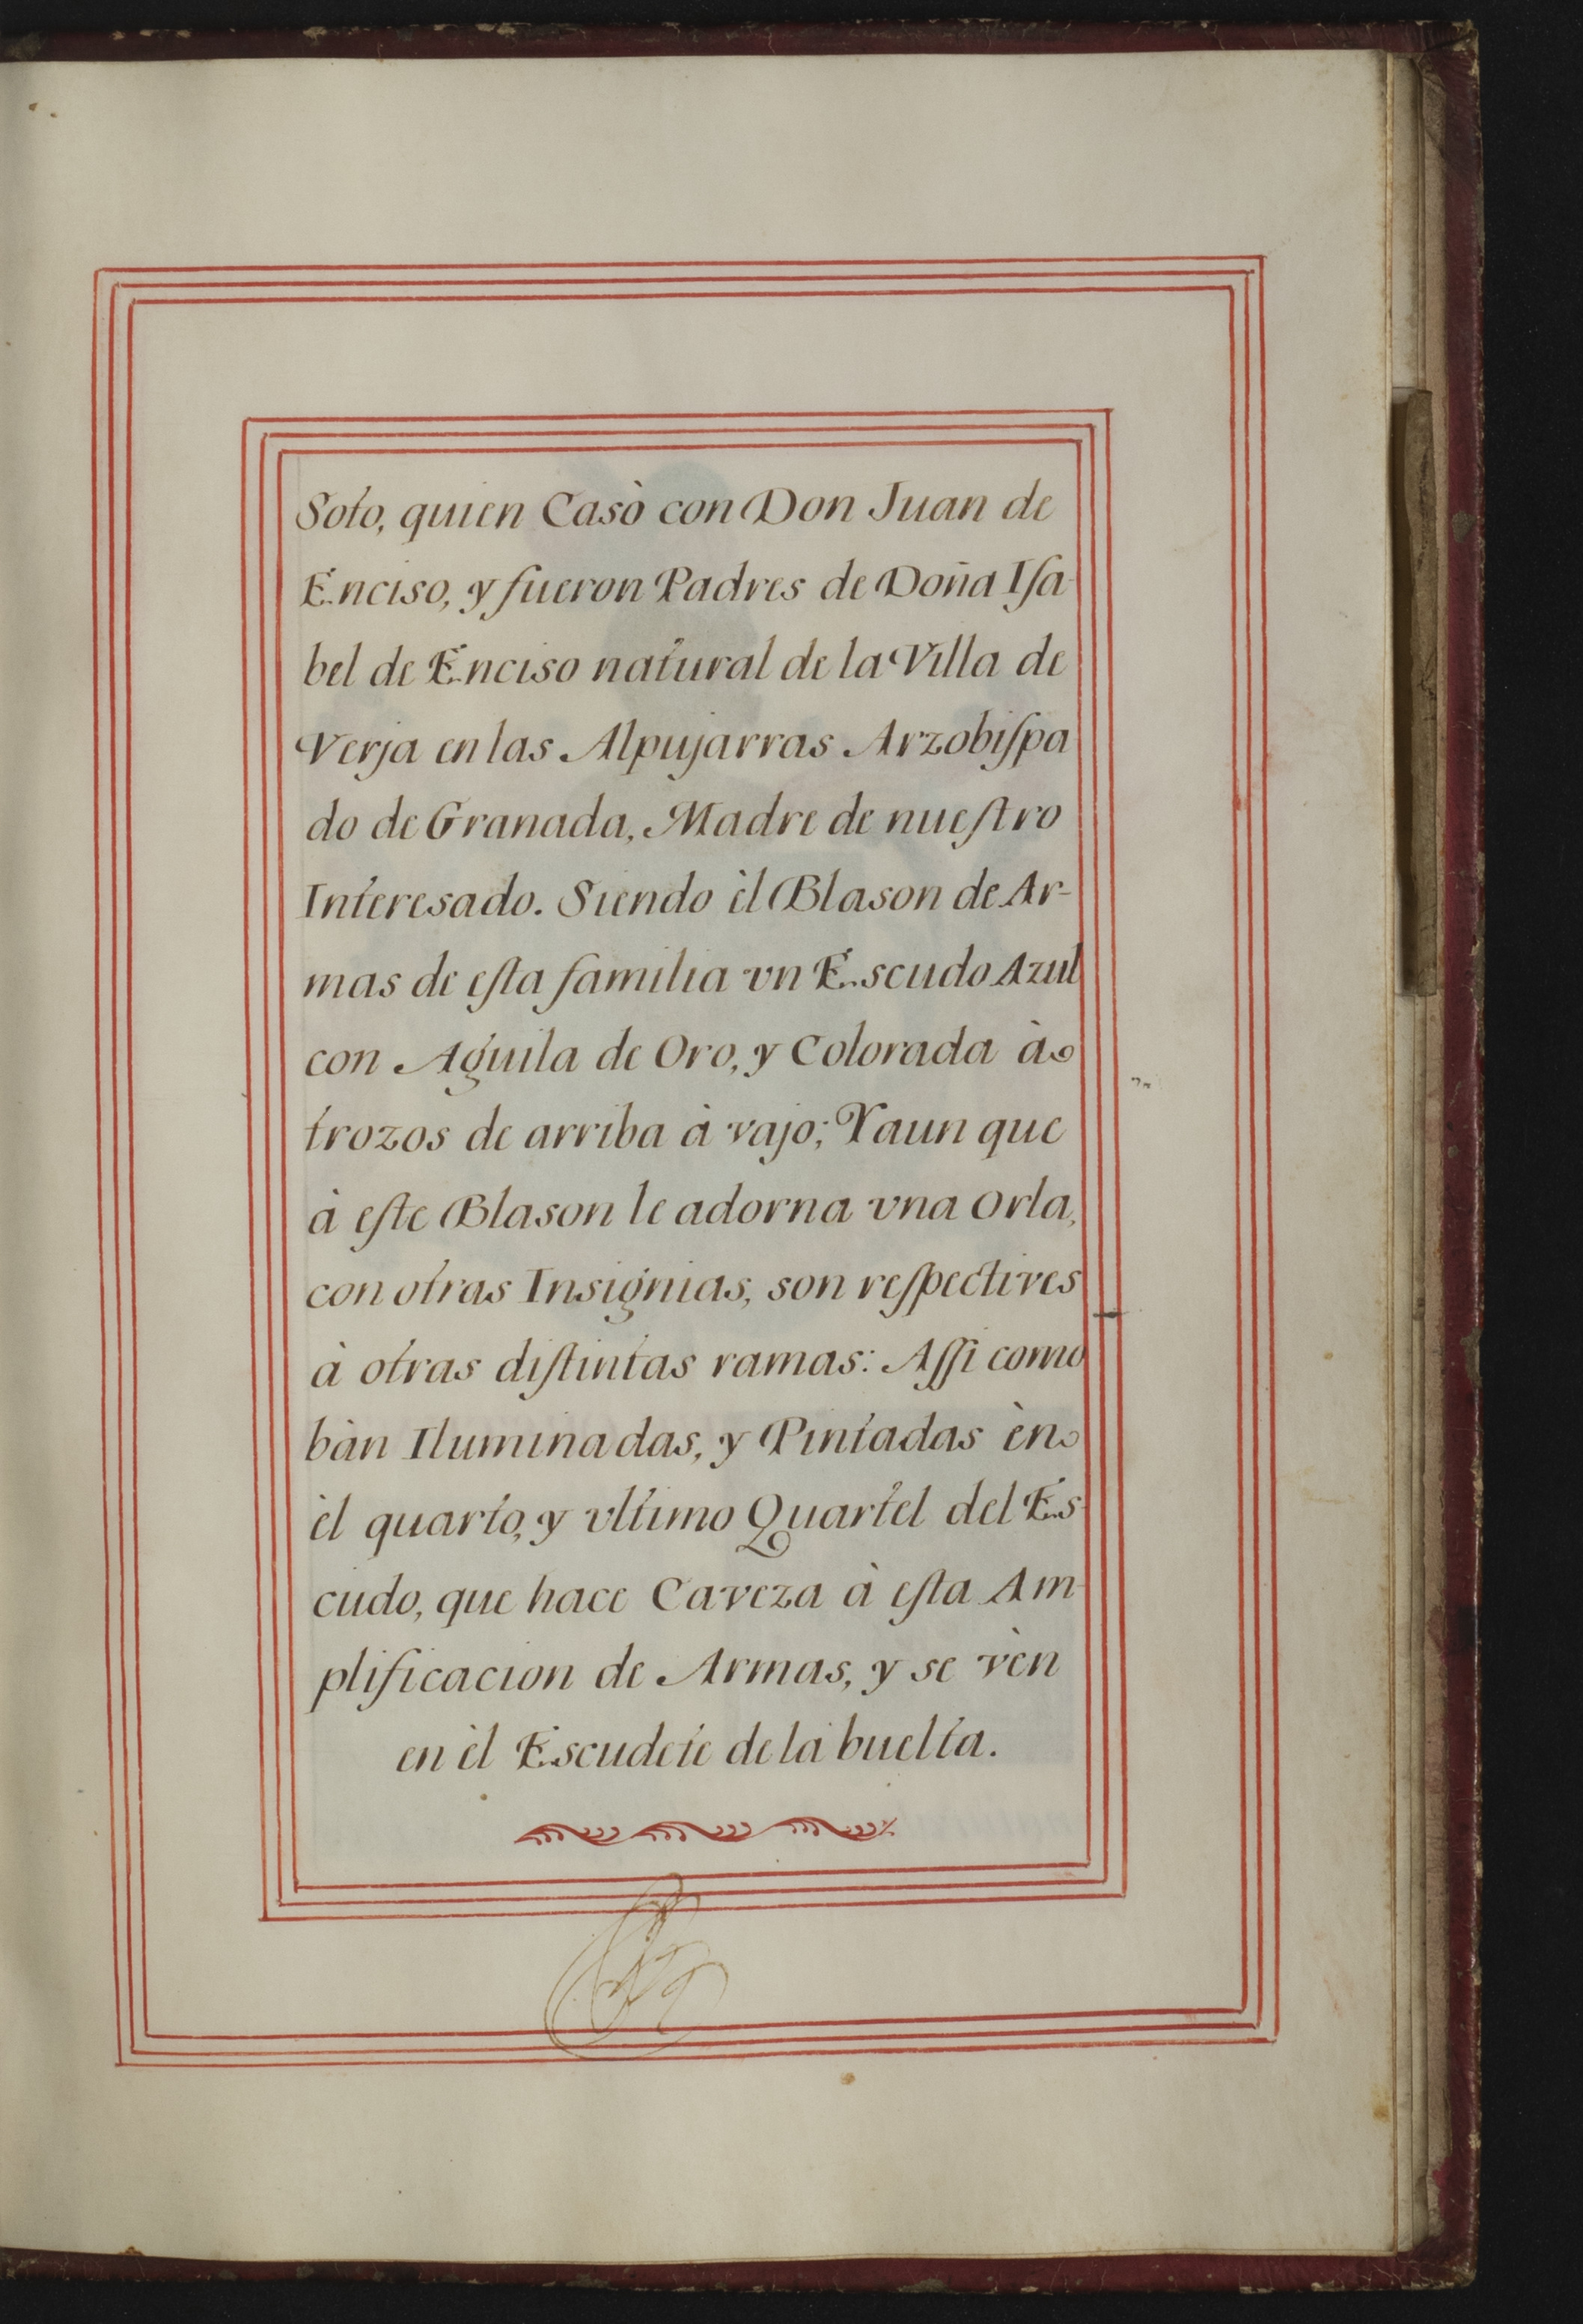 Soto, quien Casò con Don Juan de
Enciso, y fueron Padres de Doña Iſa-
bel de Enciso natural de la Villa de
Verja en las Alpujarras Arzobiſpa
do de Granada, Madre de nueſtro
Interesado. Siendo èl Blason de Ar-
mas de eſta familia vn Escudo Azul
con Aguila de Oro, y Colorada à
trozos de arriba à vajo; Yaun que
à eſte Blason le adorna vna Orla,
con otras Insignias, son reſpectives
à otras diſtintas ramas: Aſſi como
bàn Iluminadas, y Pintadas èn
èl quarto, y vltimo Quartel del Es-
cudo, que hace Caveza à eſta Am-
plificacion de Armas, y se vèn
en èl Escudete de la buelta.